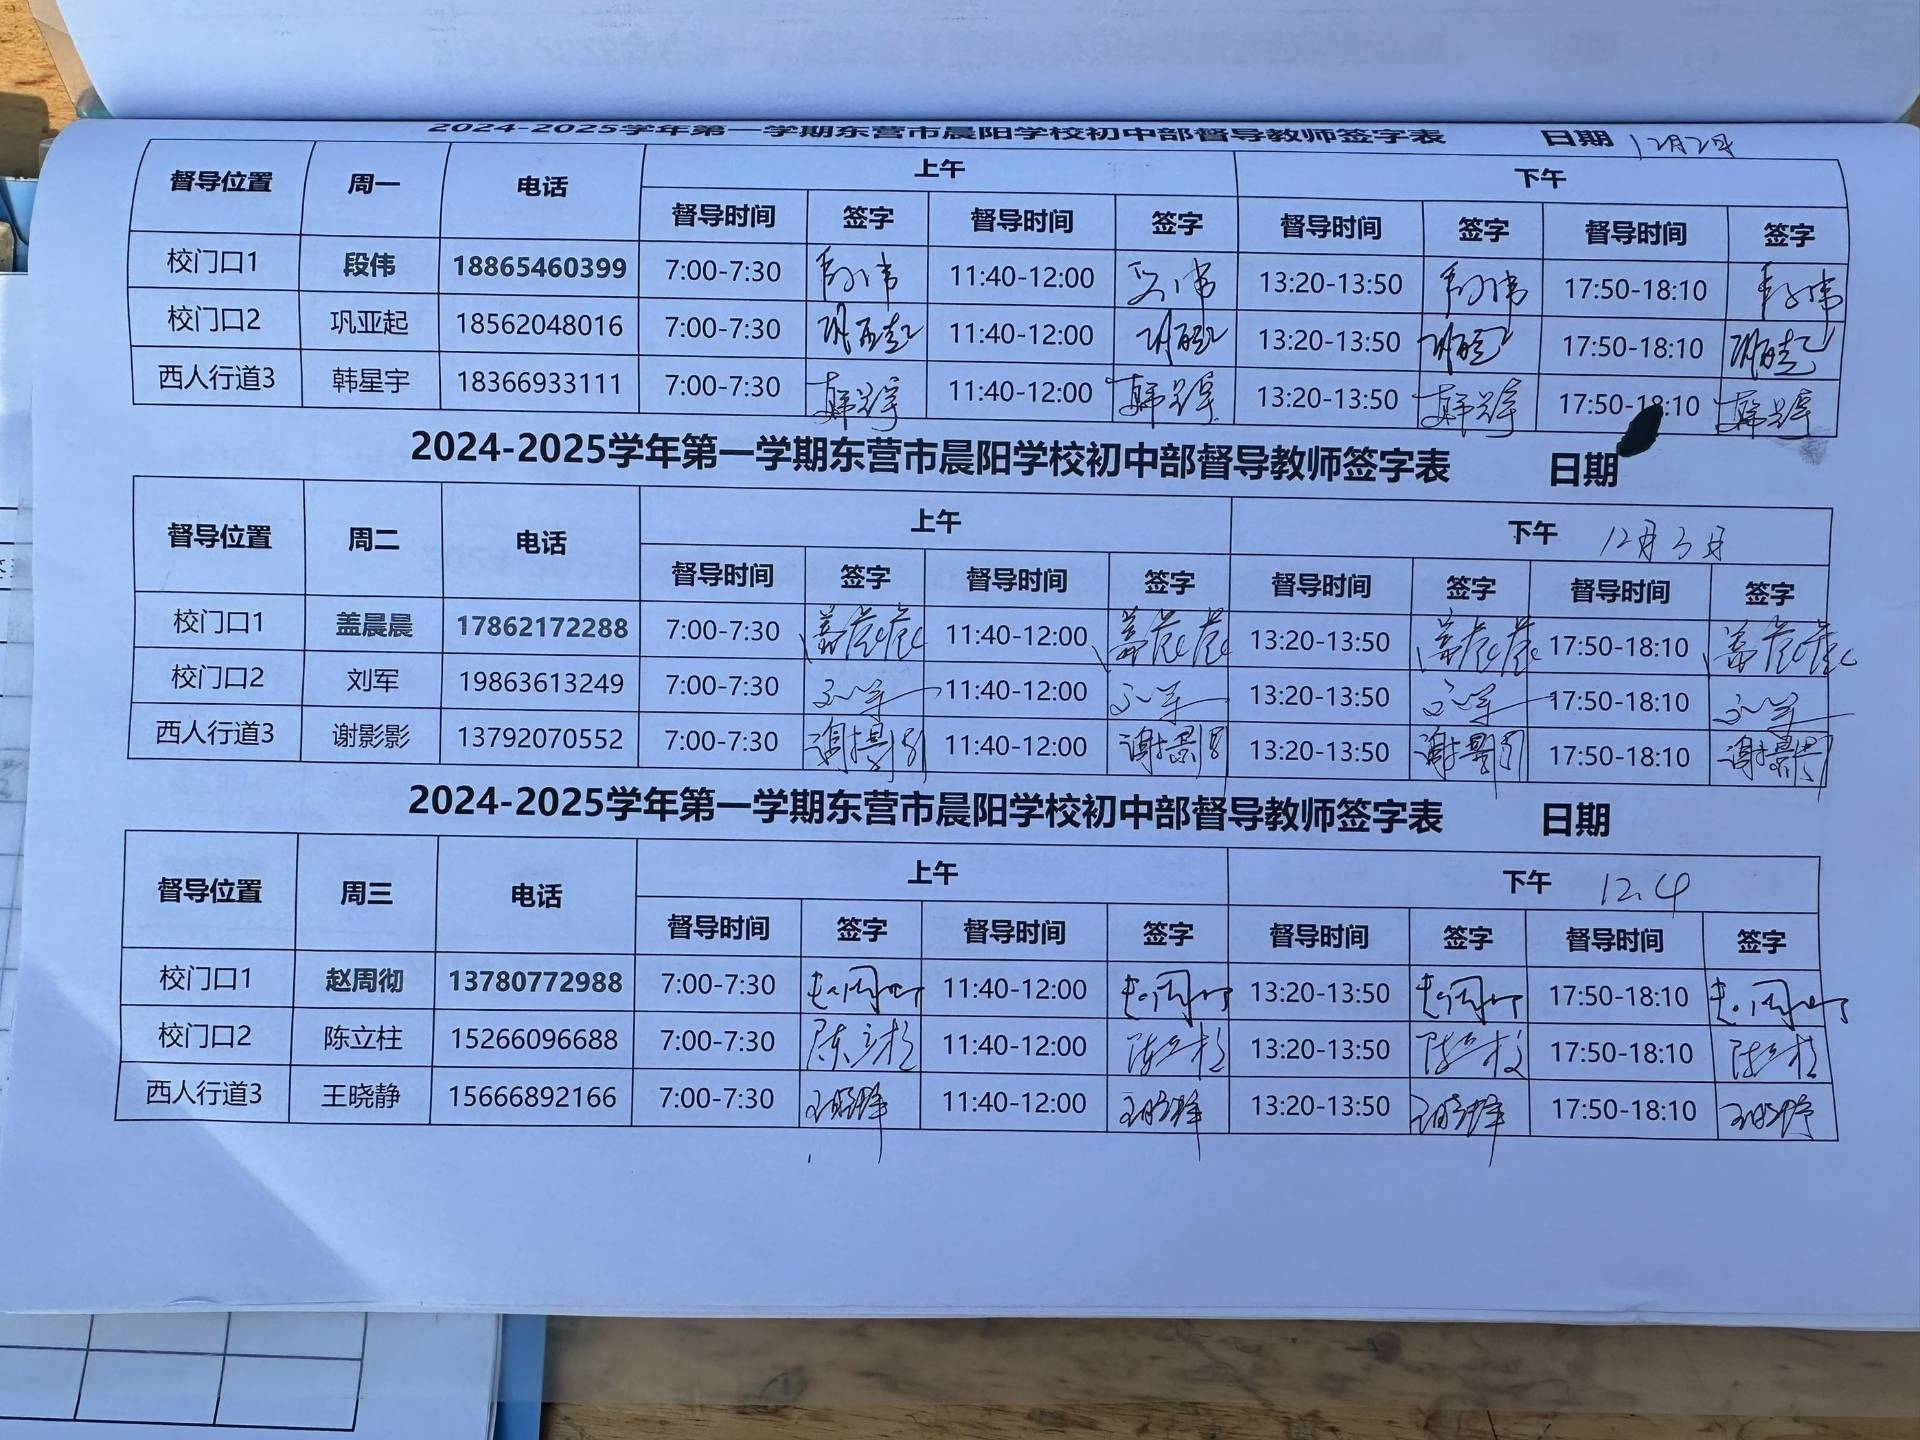 2024-2025学年第一学期东营市晨阳学校初中部督导教师签字表 日期 12月2日
督导位置 周一 电话 上午 下午
督导时间 签字 督导时间 签字 督导时间 签字 督导时间 签字
校门口1 段伟 18865460399 7:00-7:30 段伟 11:40-12:00 段伟 13:20-13:50 段伟 17:50-18:10 段伟
校门口2 巩亚起 18562048016 7:00-7:30 巩亚起 11:40-12:00 巩亚起 13:20-13:50 巩亚起 17:50-18:10 巩亚起
西人行道3 韩星宇 18366933111 7:00-7:30 韩星宇 11:40-12:00 韩星宇 13:20-13:50 韩星宇 17:50-18:10 韩星宇
2024-2025学年第一学期东营市晨阳学校初中部督导教师签字表 日期
督导位置 周二 电话 上午 下午 12月3日
督导时间 签字 督导时间 签字 督导时间 签字 督导时间 签字
校门口1 盖晨晨 17862172288 7:00-7:30 盖晨晨 11:40-12:00 盖晨晨 13:20-13:50 盖晨晨 17:50-18:10 盖晨晨
校门口2 刘军 19863613249 7:00-7:30 刘军 11:40-12:00 刘军 13:20-13:50 刘军 17:50-18:10 刘军
西人行道3 谢影影 13792070552 7:00-7:30 谢影影 11:40-12:00 谢影影 13:20-13:50 谢影影 17:50-18:10 谢影影
2024-2025学年第一学期东营市晨阳学校初中部督导教师签字表 日期
督导位置 周三 电话 上午 下午 12.4
督导时间 签字 督导时间 签字 督导时间 签字 督导时间 签字
校门口1 赵周彻 13780772988 7:00-7:30 赵周彻 11:40-12:00 赵周彻 13:20-13:50 赵周彻 17:50-18:10 赵周彻
校门口2 陈立柱 15266096688 7:00-7:30 陈立柱 11:40-12:00 陈立柱 13:20-13:50 陈立柱 17:50-18:10 陈立柱
西人行道3 王晓静 15666892166 7:00-7:30 王晓静 11:40-12:00 王晓静 13:20-13:50 王晓静 17:50-18:10 王晓静